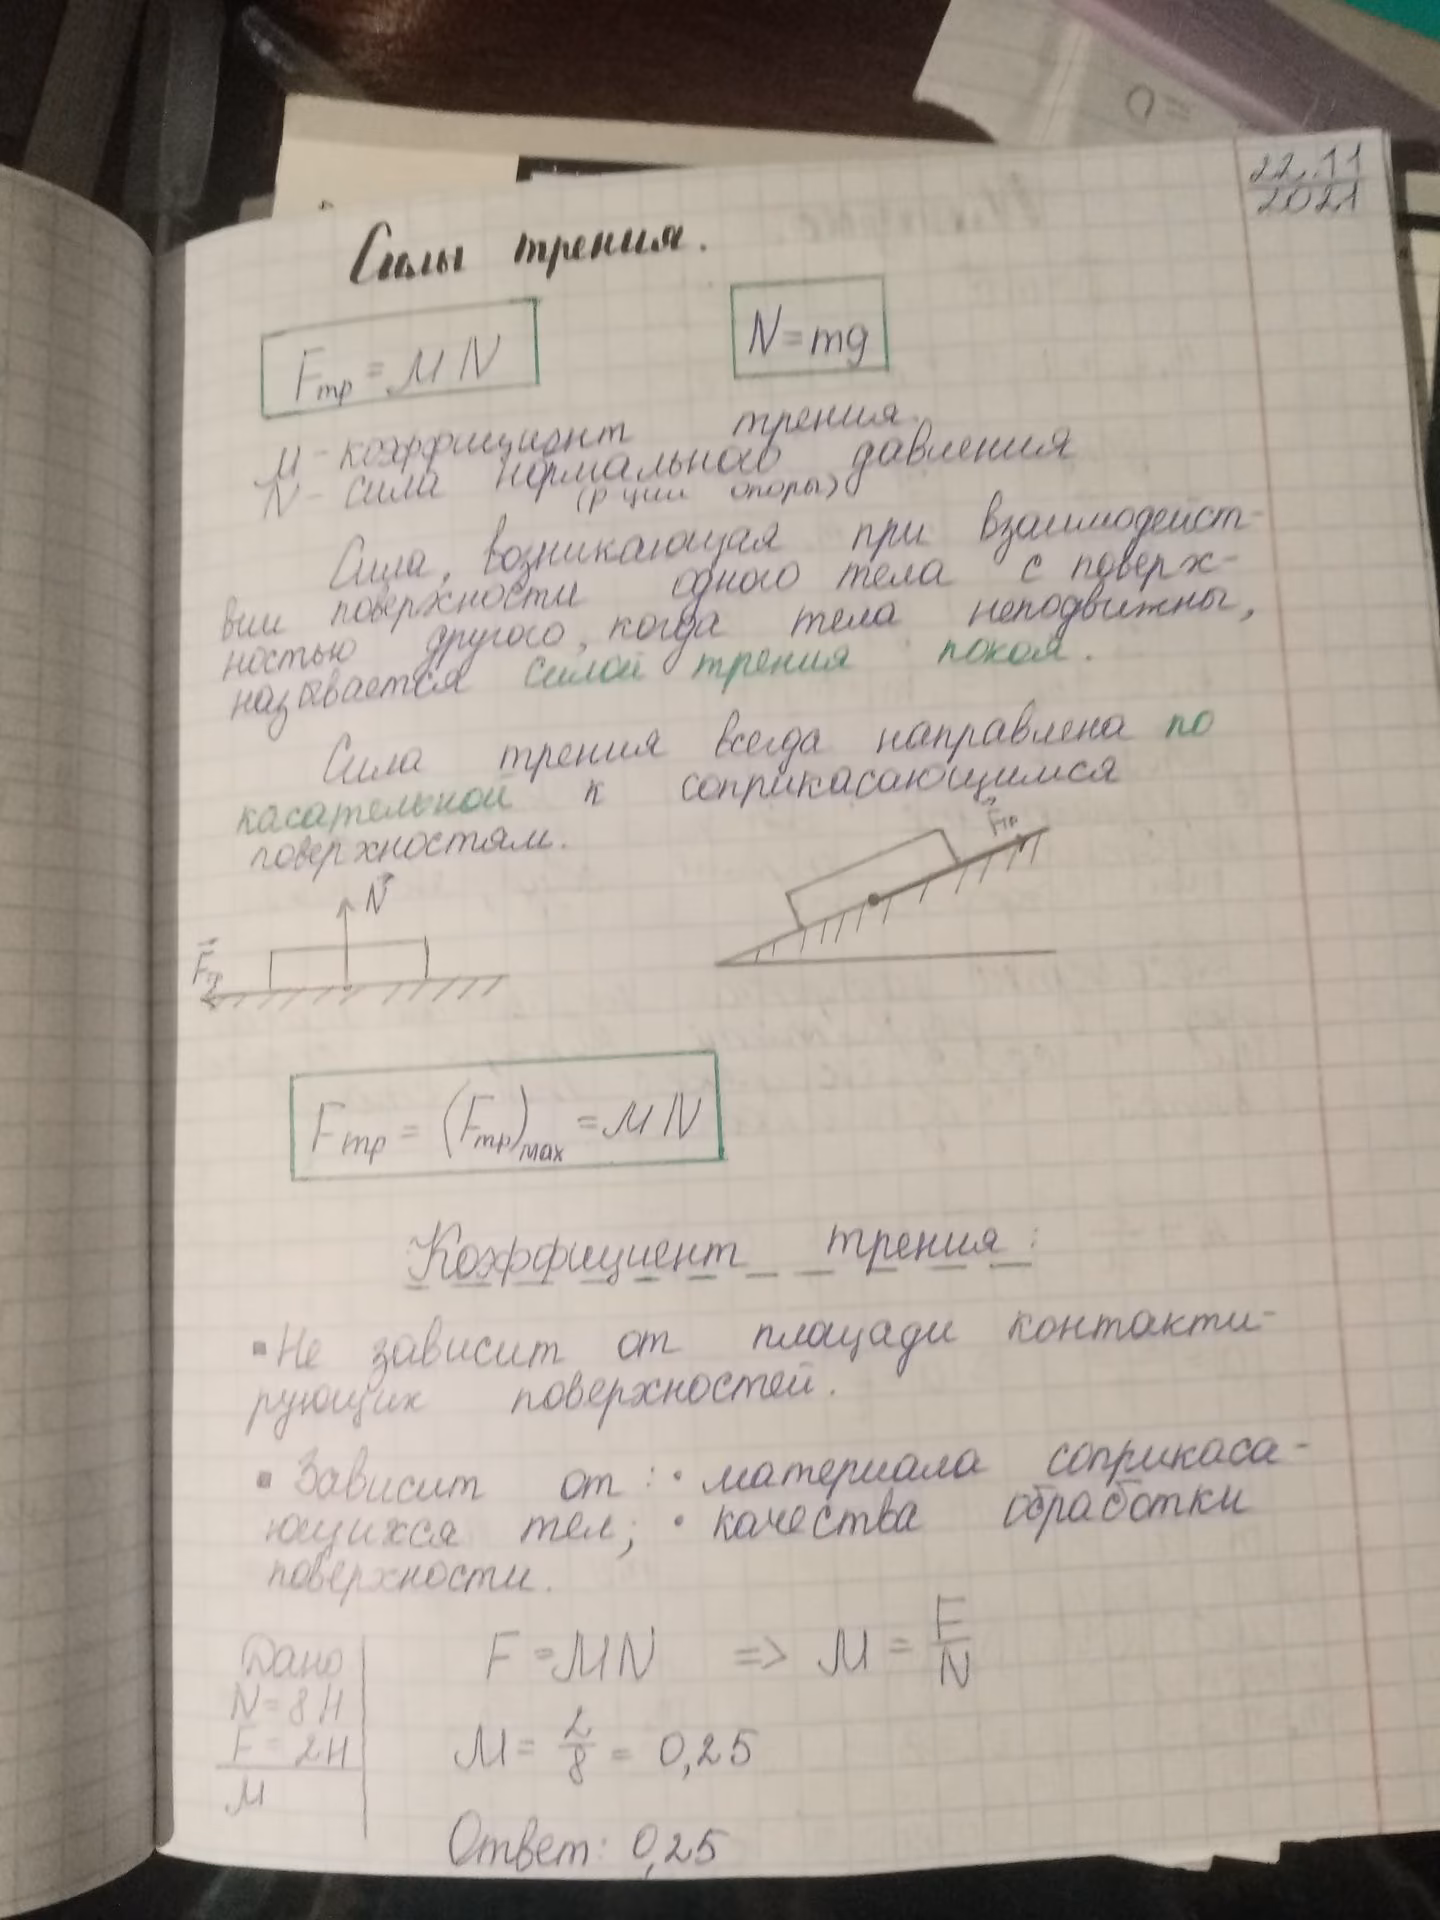 22.11
2021
Силы трения.
Fтр = μN
N = mg
μ - коэффициент трения.
N - сила нормального давления
(р-ции опоры)
Сила, возникающая при взаимодейст-
вии поверхности одного тела с поверх-
ностью другого, когда тела неподвижны,
называется силой трения покоя.
Сила трения всегда направлена по
касательной к соприкасающимся
поверхностям.
N
Fтр
Fтр
Fтр = (Fтр)max = μN
Коэффициент трения:
▪ Не зависит от площади контакти-
рующих поверхностей.
▪ Зависит от: • материала соприкаса-
ющихся тел; • качества обработки
поверхности.
Дано
N = 8 Н
F = 2 Н
μ
F = μN => μ = F/N
μ = 2/8 = 0,25
Ответ: 0,25